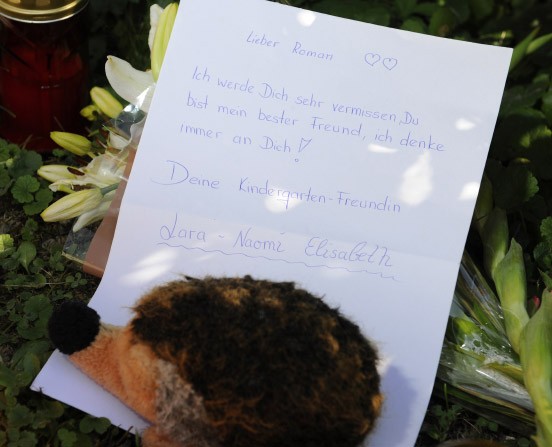 Lieber Roman ♡♡
Ich werde Dich sehr vermissen, Du
bist mein bester Freund, ich denke
immer an Dich!
Deine Kindergarten-Freundin
Lara - Naomi Elisabeth